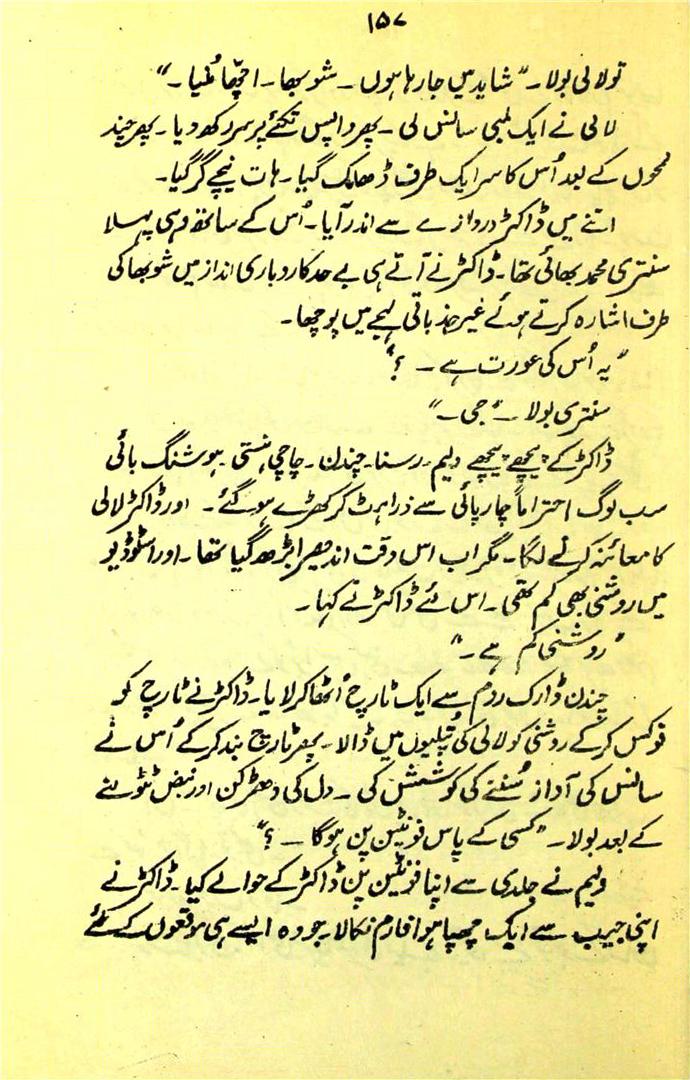 ۱۵۷
تو لالی بولا۔ "شاید میں جا رہا ہوں۔ شوبھا۔ اچھا مُنیا۔"
لالی نے ایک لمبی سانس لی۔ پھر واپس تکئے پر سر رکھ دیا۔ پھر چند
لمحوں کے بعد اُس کا سر ایک طرف ڈھلک گیا۔ ہات نیچے گر گیا۔
اتنے میں ڈاکٹر دروازے سے اندر آیا۔ اُس کے ساتھ وہی پہلا
سنتری محمد بھائی تھا۔ ڈاکٹر نے آتے ہی بے حد کاروباری انداز میں شوبھا کی
طرف اشارہ کرتے ہوئے غیر جذباتی لہجے میں پوچھا۔
"یہ اُس کی عورت ہے ۔ ؟"
سنتری بولا ۔ "جی۔"
ڈاکٹر کے پیچھے پیچھے ولیم۔ رسنا۔ چندن۔ چاچی ہنستی۔ ہوشنگ بائی
سب لوگ احتراماً چارپائی سے ذرا ہٹ کر کھڑے ہو گئے۔ اور ڈاکٹر لالی
کا معائنہ کرنے لگا۔ مگر اب اس وقت اندھیرا بڑھ گیا تھا۔ اور اسٹوڈیو
میں روشنی بھی کم تھی۔ اس لئے ڈاکٹر نے کہا۔
"روشنی کم ہے۔"
چندن ڈارک روم سے ایک ٹارچ اُٹھا کر لایا۔ ڈاکٹر نے ٹارچ کو
فوکس کر کے روشنی کو لالی کی پُتلیوں میں ڈالا۔ پھر ٹارچ بند کر کے اُس نے
سانس کی آواز سُننے کی کوشش کی۔ دل کی دھڑکن اور نبض ٹٹولنے
کے بعد بولا۔ "کسی کے پاس فونٹین پن ہوگا ۔ ؟"
ولیم نے جلدی سے اپنا فونٹین پن ڈاکٹر کے حوالے کیا۔ ڈاکٹر نے
اپنی جیب سے ایک چھپا ہوا فارم نکالا۔ جو وہ ایسے ہی موقعوں کے لئے